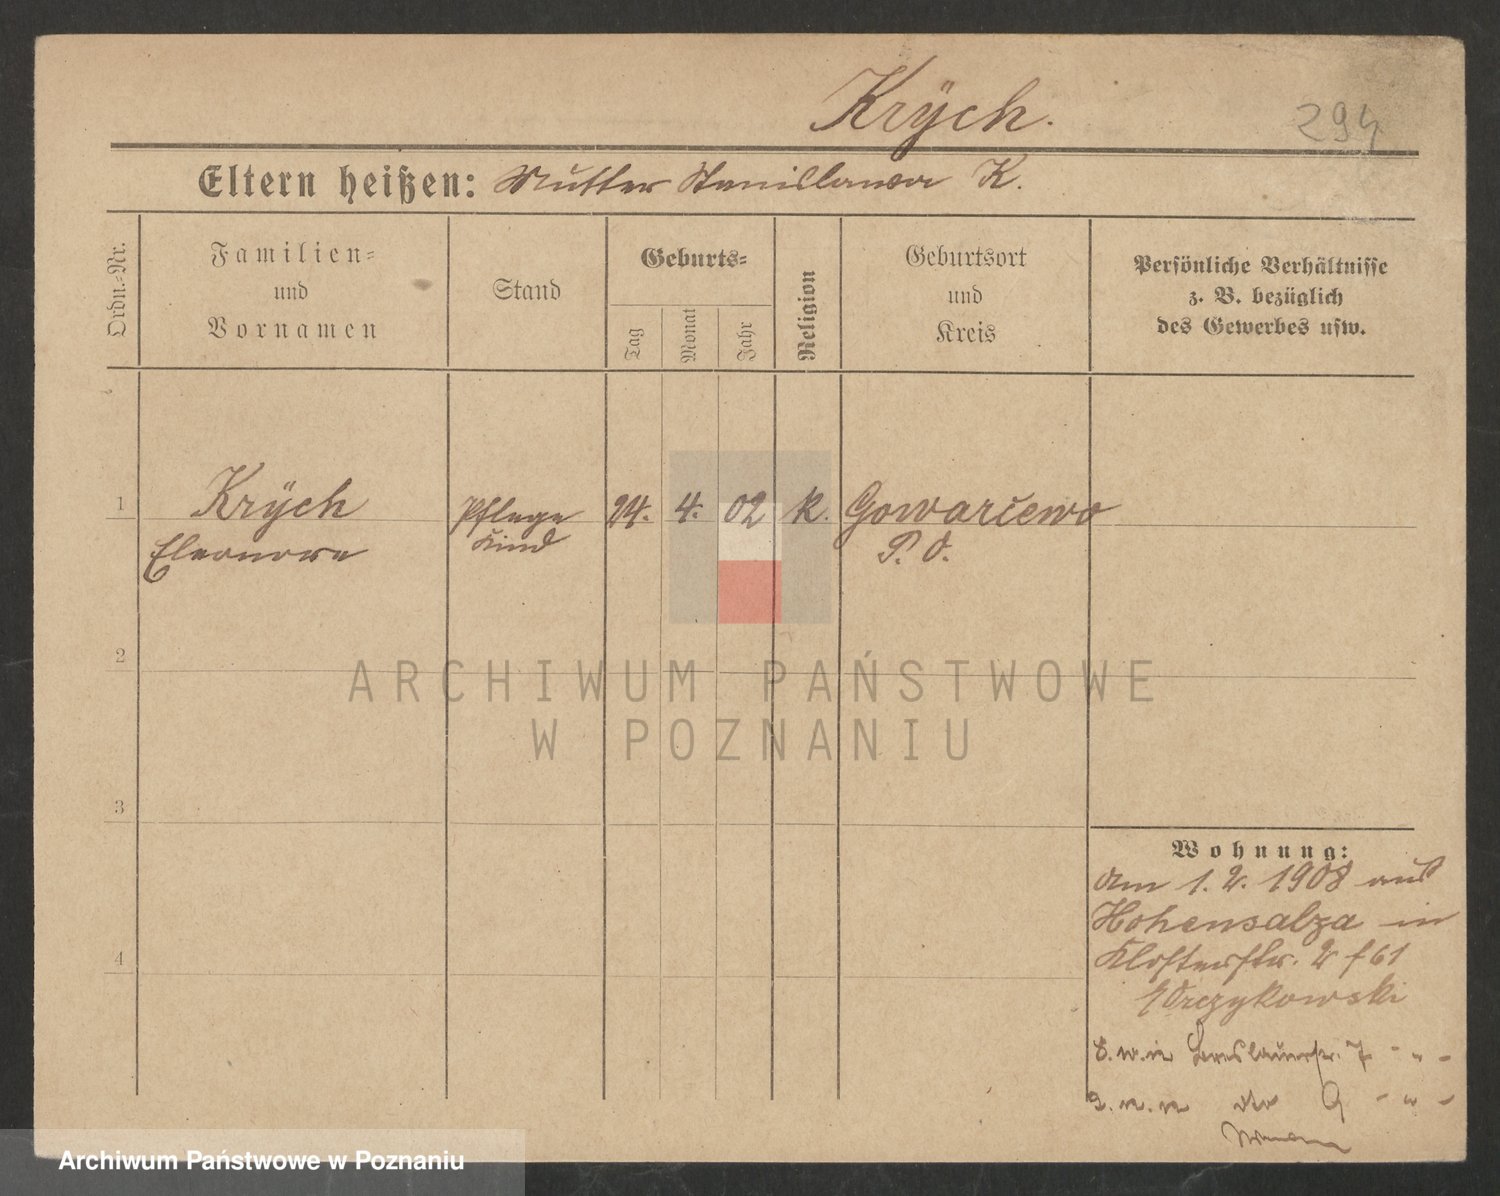 Krÿch.
294
Eltern heißen: Mutter Stanislawa K.
Ordn.-Nr.
Familien=
und
Vornamen
Stand
Geburts=
Tag
Monat
Jahr
Religion
Geburtsort
und
Kreis
Persönliche Verhältnisse
z. B. bezüglich
des Gewerbes usw.
1
Krÿch
Eleonore
Pflege
Kind
24. 4. 02
k.
Gowarčewo
P. O.
2
3
4
Wohnung:
Am 1. 2. 1908 aus
Hohensalza in
Klosterstr. 2 f 61
Breslauerstr. 7 - " -
9 - " -
ARCHIWUM PAŃSTWOWE
W POZNANIU
Archiwum Państwowe w Poznaniu